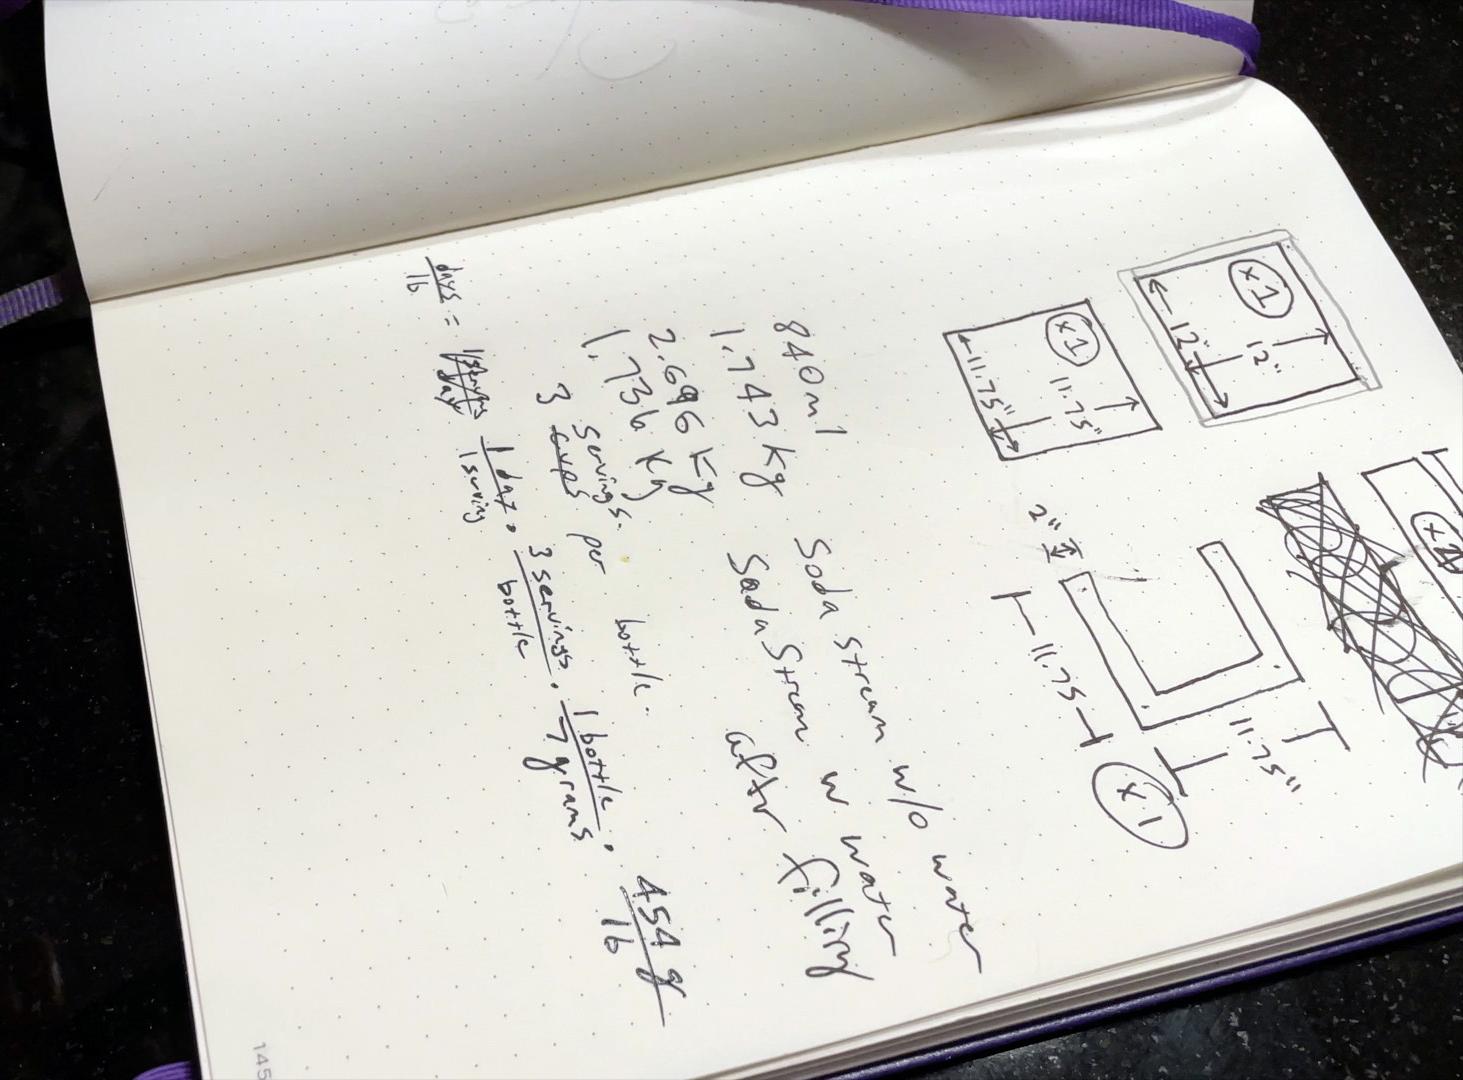 x1
12"
12"
x1
11.75"
11.75"
2"
11.75
11.75"
x1
840ml
1.743 kg Soda Stream w/o water
2.696 kg Soda Stream w water
1.736 kg after filling
3 servings per bottle.
days/lb = 1 day/1 serving · 3 servings/bottle · 1 bottle/7 grams · 454 g/lb
145